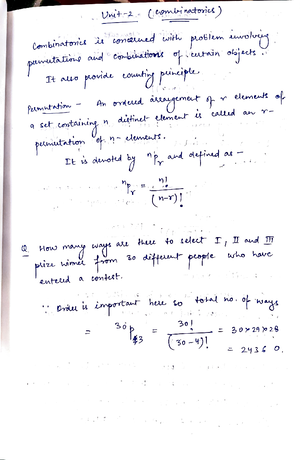 Unit-2. (Combinatorics)
Combinatorics is concerned with problem involving
permutations and combinations of certain objects.
It also provide counting principle.
Permutation - An ordered arrangement of r elements of
a set containing n distinct element is called an r-
permutation of n-elements.
It is denoted by ⁿPᵣ and defined as -
ⁿPᵣ = n! / (n-r)!
Q How many ways are there to select I, II and III
prize winner from 30 different people who have
entered a contest.
∵ Order is important here so total no. of ways
= ³⁰P₃ = 30! / (30-4)! = 30×29×28
= 24360.